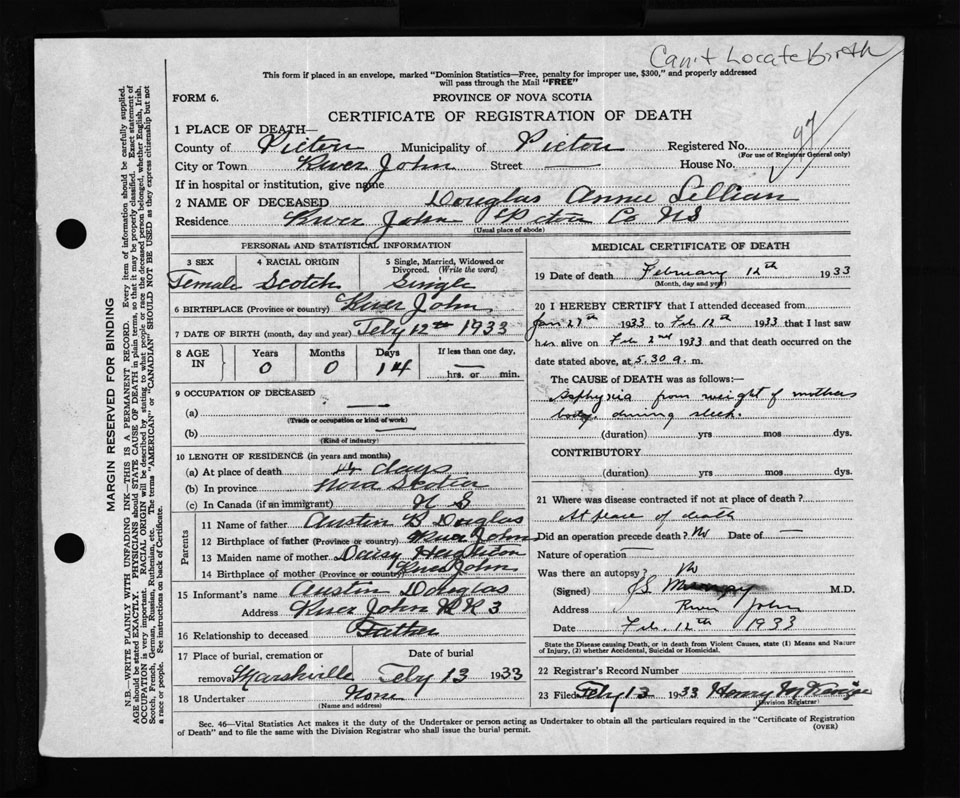 Can't Locate Birth
This form if placed in an envelope, marked "Dominion Statistics—Free, penalty for improper use, $300," and properly addressed
will pass through the Mail "FREE"
FORM 6.
PROVINCE OF NOVA SCOTIA
CERTIFICATE OF REGISTRATION OF DEATH
97
1 PLACE OF DEATH—
County of Pictou Municipality of Pictou Registered No.
(For use of Registrar General only)
City or Town River John Street — House No.
If in hospital or institution, give name
2 NAME OF DECEASED Douglas Annie Lillian
Residence River John Pictou Co NS
(Usual place of abode)
PERSONAL AND STATISTICAL INFORMATION
3 SEX 4 RACIAL ORIGIN 5 Single, Married, Widowed or
Divorced. (Write the word)
Female Scotch Single
6 BIRTHPLACE (Province or country) River John
7 DATE OF BIRTH (month, day and year) Feby 12th 1933
8 AGE IN Years Months Days If less than one day,
0 0 14 — hrs. or min.
9 OCCUPATION OF DECEASED
(a) —
(Trade or occupation or kind of work)
(b) —
(Kind of industry)
10 LENGTH OF RESIDENCE (in years and months)
(a) At place of death 14 days
(b) In province Nova Scotia
(c) In Canada (if an immigrant) N S
Parents
11 Name of father Austin B Douglas
12 Birthplace of father (Province or country) River John
13 Maiden name of mother Daisy Heighton
14 Birthplace of mother (Province or country) River John
15 Informant's name Austin Douglas
Address River John RR 3
16 Relationship to deceased Father
17 Place of burial, cremation or Date of burial
removal Marshville Feby 13 1933
18 Undertaker None
(Name and address)
MEDICAL CERTIFICATE OF DEATH
19 Date of death February 12th 1933
(Month, day and year)
20 I HEREBY CERTIFY that I attended deceased from
Jan 29th 1933 to Feb 12th 1933 that I last saw
her alive on Feb 2nd 1933 and that death occurred on the
date stated above, at 5.30 a. m.
The CAUSE of DEATH was as follows:—
Asphyxia from weight of mothers
body during sleep.
(duration) yrs mos dys.
CONTRIBUTORY
(duration) yrs mos dys.
21 Where was disease contracted if not at place of death?
At place of death
Did an operation precede death? No Date of —
Nature of operation —
Was there an autopsy? No
(Signed) M.D.
Address River John
Date Feb. 12th 1933
State the Disease causing Death, or in death from Violent Causes, state (1) Means and Nature
of Injury, (2) whether Accidental, Suicidal or Homicidal.
22 Registrar's Record Number
23 Filed Feby 13 1933 Henry
(Division Registrar)
Sec. 46—Vital Statistics Act makes it the duty of the Undertaker or person acting as Undertaker to obtain all the particulars required in the "Certificate of Registration
of Death" and to file the same with the Division Registrar who shall issue the burial permit.
(OVER)
MARGIN RESERVED FOR BINDING
N.B.—WRITE PLAINLY WITH UNFADING INK—THIS IS A PERMANENT RECORD. Every item of information should be carefully supplied.
AGE should be stated EXACTLY. PHYSICIANS should STATE CAUSE OF DEATH in plain terms, so that it may be properly classified. Exact statement of
OCCUPATION is very important. RACIAL ORIGIN will be described by stating to what people or race the deceased person belonged, whether English, Irish,
Scotch, French, German, Russian, Ruthenian, etc. The terms "AMERICAN" or "CANADIAN" SHOULD NOT BE USED as they express citizenship but not
a race or people. See instructions on back of Certificate.